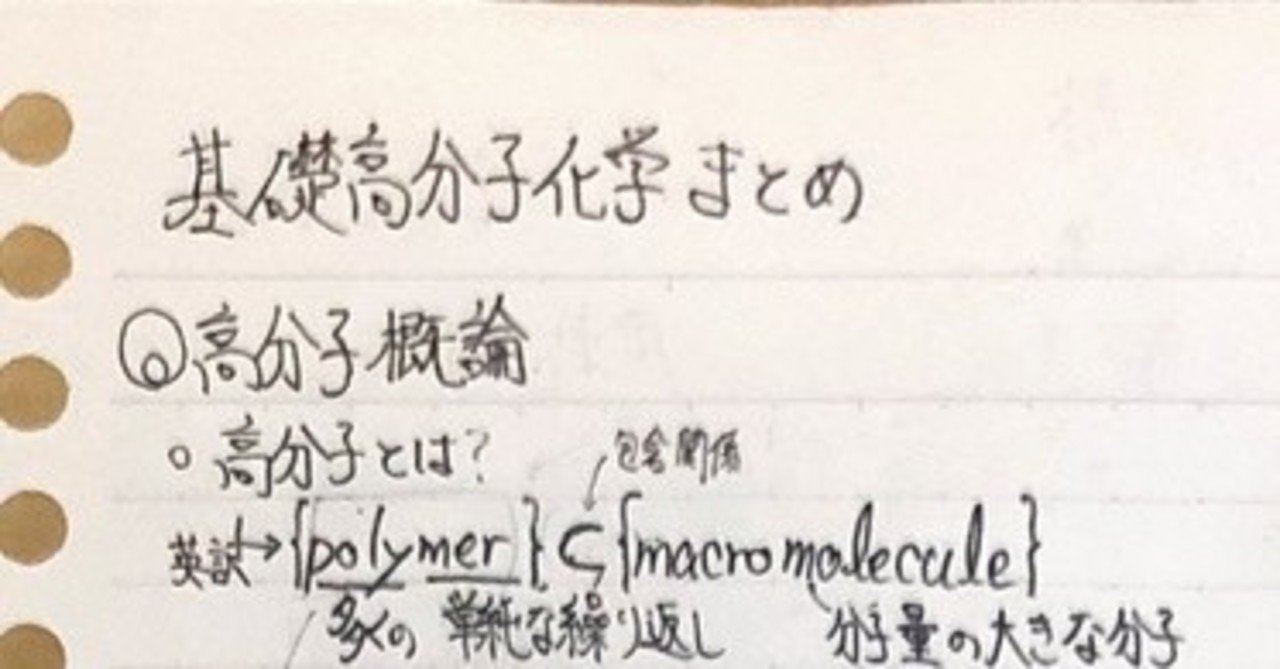 基礎高分子化学まとめ
◎高分子概論
○ 高分子とは?
包含関係
英訳→{polymer}⊂{macromolecule}
多くの 単純な繰り返し 分子量の大きな分子